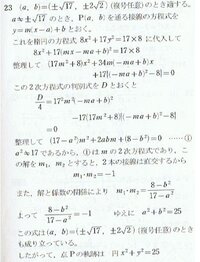 23 (a, b)=(±√17, ±2√2)(復号任意)のとき適する。
a≠±√17 のとき, P(a, b)を通る接線の方程式を
y=m(x-a)+b とおく。
これを楕円の方程式 8x²+17y²=17×8 に代入して
8x²+17(mx-ma+b)²=17×8
整理して (17m²+8)x²+34m(-ma+b)x
+17{(-ma+b)²-8}=0
この2次方程式の判別式を D とおくと
D/4=17²m²(-ma+b)²
-17(17m²+8){(-ma+b)²-8}
=0
整理して (17-a²)m²+2abm+(8-b²)=0 ……①
a²≠17 であるから, ①は m の2次方程式であり, こ
の解を m₁, m₂ とすると, 2本の接線が直交するから
m₁·m₂=-1
また, 解と係数の関係により m₁·m₂=(8-b²)/(17-a²)
よって (8-b²)/(17-a²)=-1 ゆえに a²+b²=25
この式は(a, b)=(±√17, ±2√2)(復号任意)のとき
も成り立っている。
したがって, 点Pの軌跡は 円 x²+y²=25